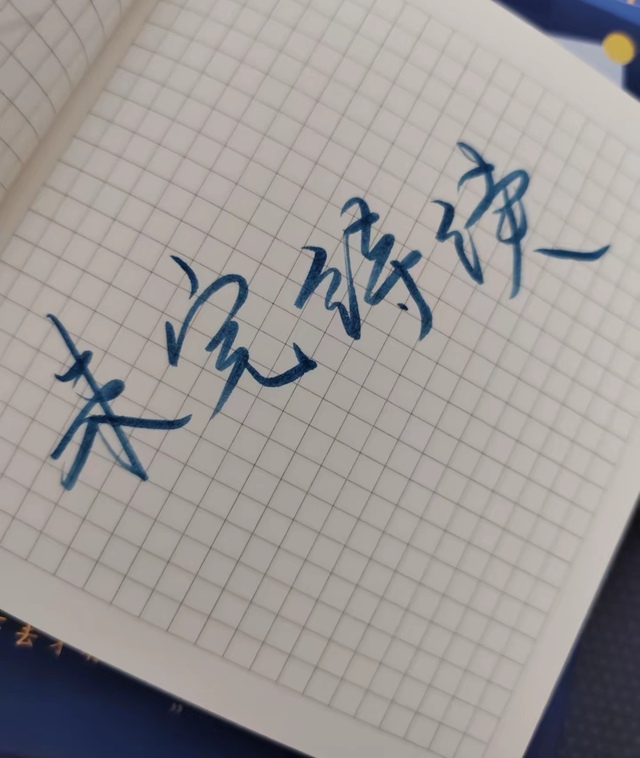 未完待续
去